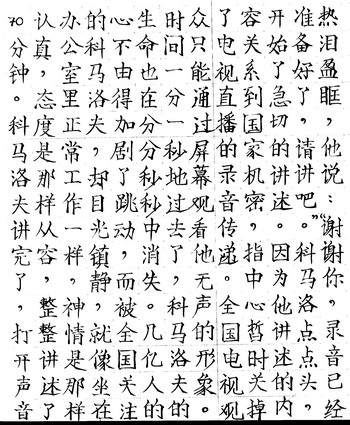 热泪盈眶，他说：“谢谢你，录音已经
准备好了，请讲吧。”科马洛点点头，
开始了急切的讲述。因为他讲述的内
容关系到国家的密。指中心哲时关掉
了电视直播的录音传递。全国电视观
众只能通过屏幕观看他无声的形象。
时间一分一秒地过去了。科马洛夫的
生命也在分分秒秒中消失。几亿人的
心不由得加剧了跳动，而被全国关注
的科马洛夫，却目光镇静，就像坐在
办公室里正常工作一样，神情是那样
认真，态度是那样从容，整整讲述了
70分钟。科马洛夫讲完了，打开声音